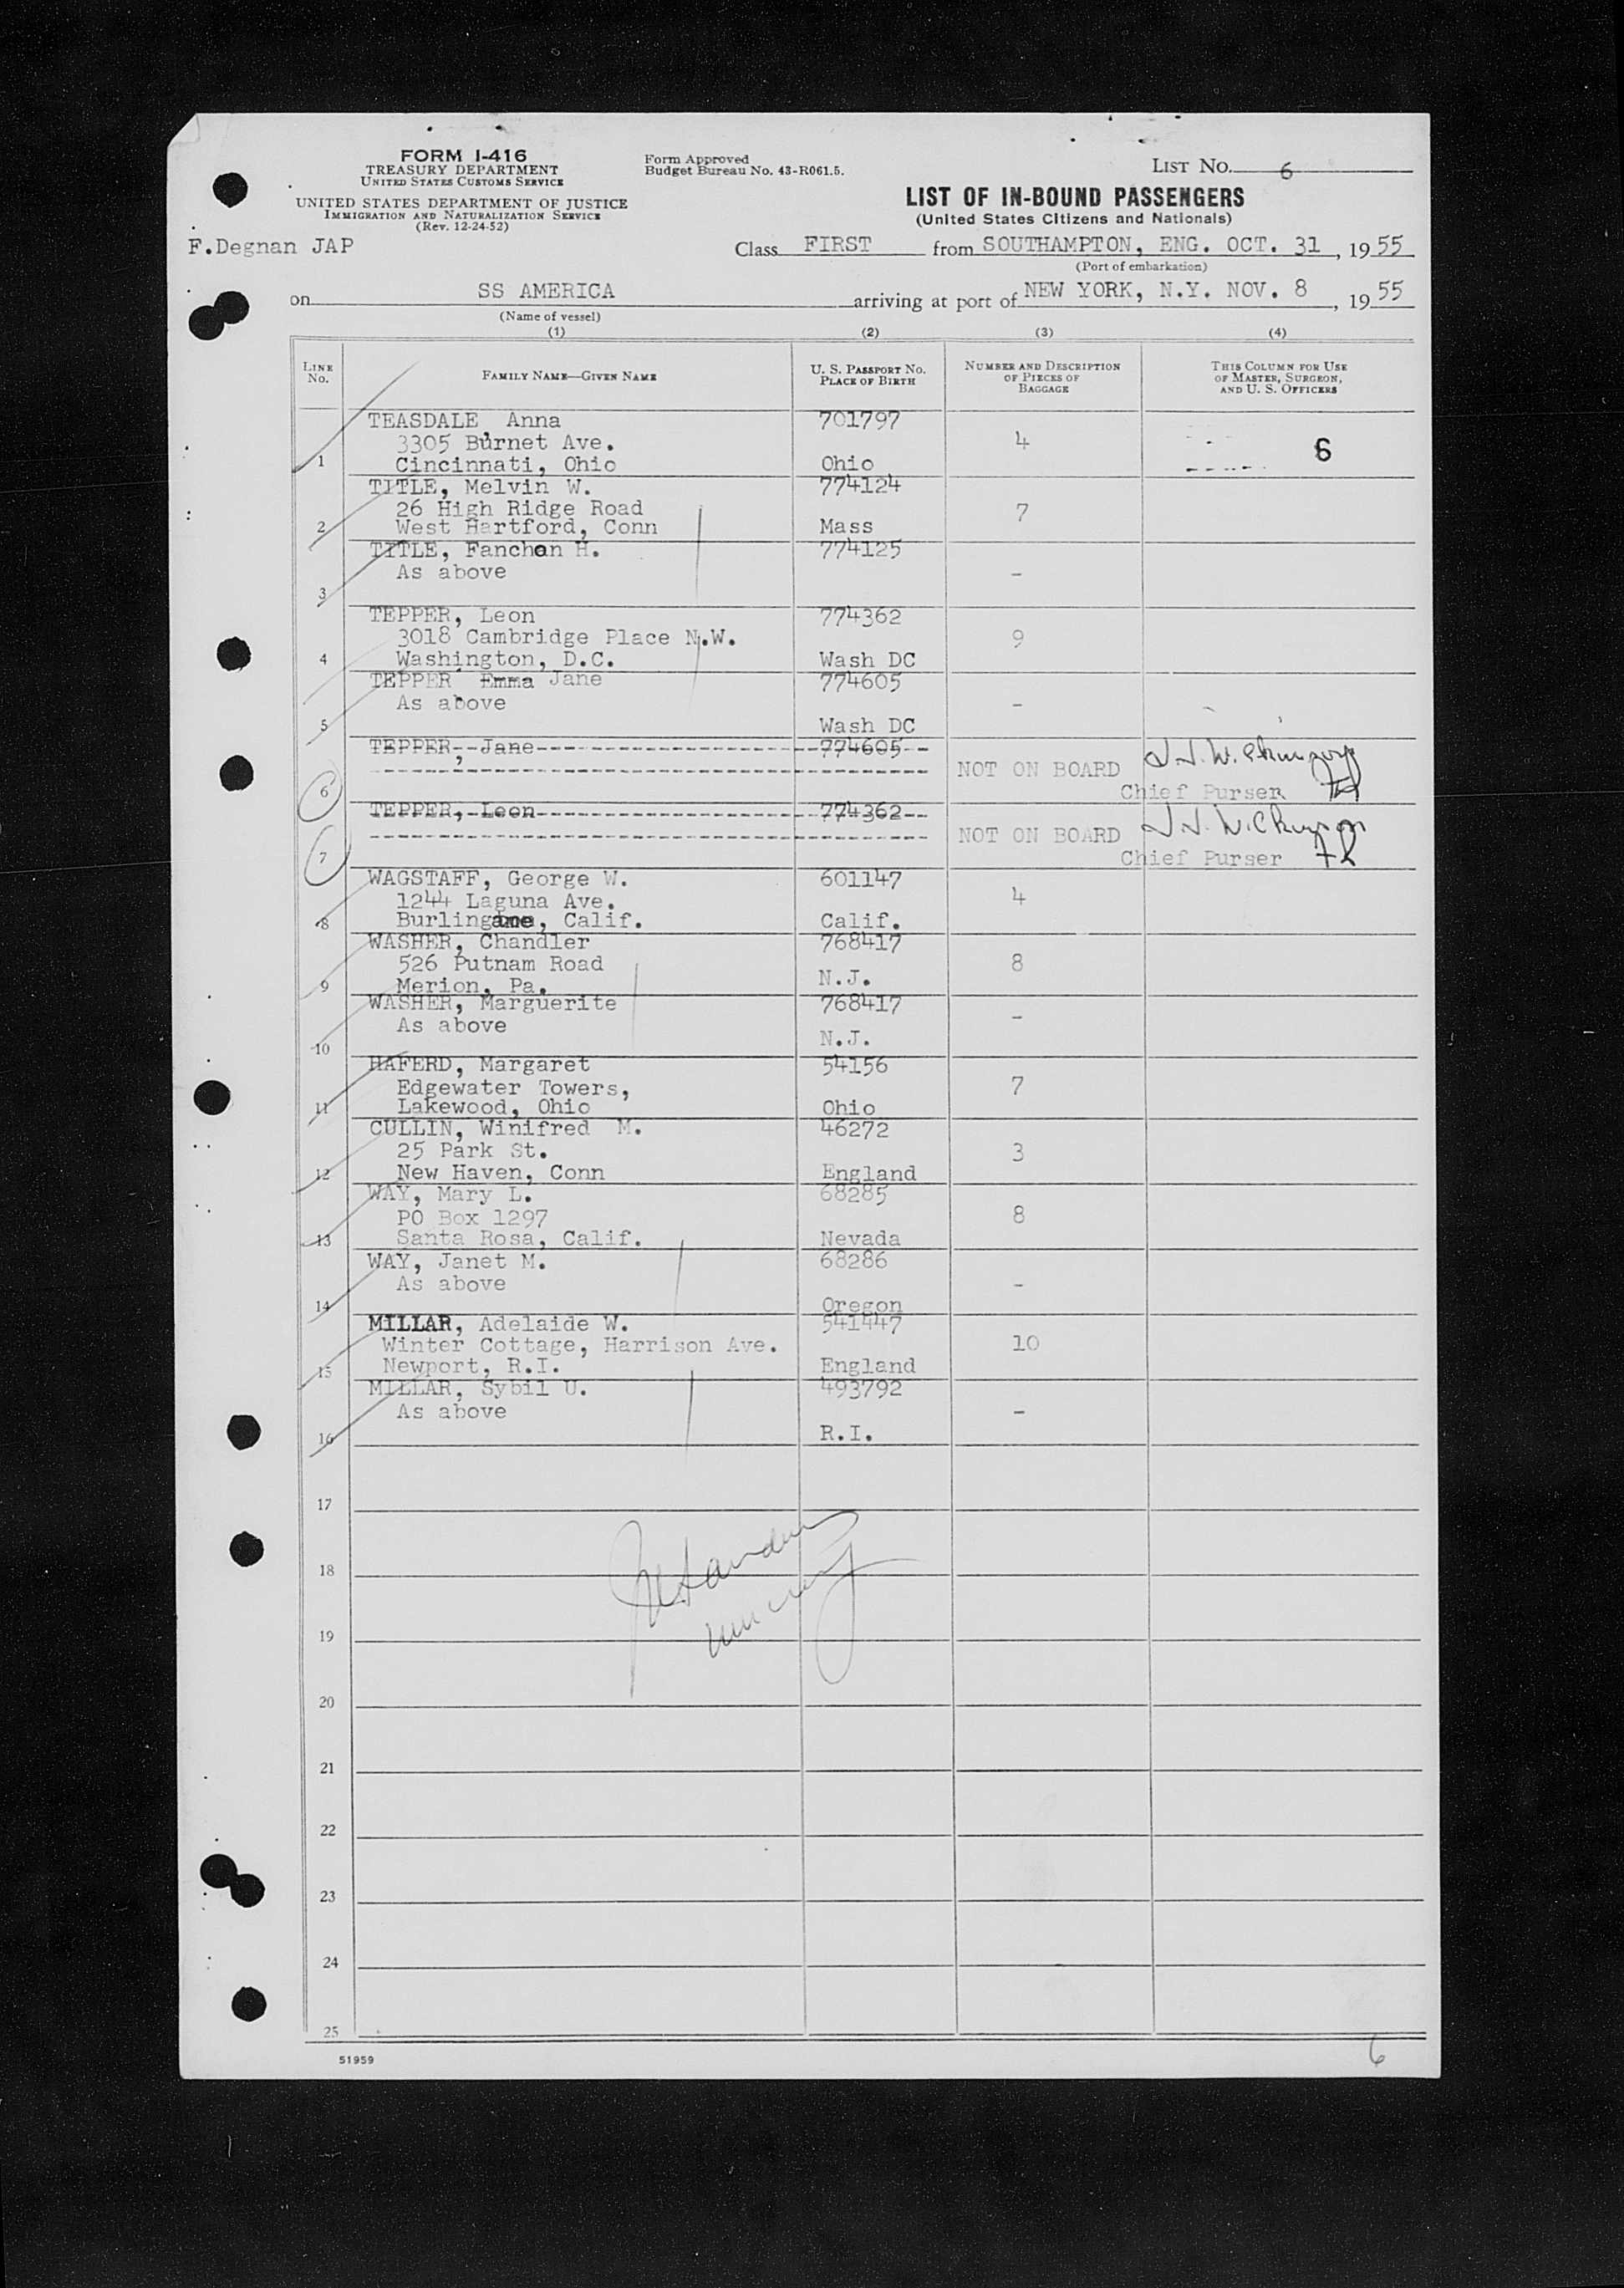 FORM I-416
TREASURY DEPARTMENT
UNITED STATES CUSTOMS SERVICE
UNITED STATES DEPARTMENT OF JUSTICE
IMMIGRATION AND NATURALIZATION SERVICE
(Rev. 12-24-52)
Form Approved
Budget Bureau No. 43-R061.5.
LIST NO. 6
LIST OF IN-BOUND PASSENGERS
(United States Citizens and Nationals)
F.Degnan JAP
Class FIRST from SOUTHAMPTON, ENG. OCT. 31, 1955
(Port of embarkation)
on SS AMERICA arriving at port of NEW YORK, N.Y. NOV. 8, 1955
(Name of vessel)
(1) (2) (3) (4)
LINE No. FAMILY NAME—GIVEN NAME U. S. PASSPORT NO. PLACE OF BIRTH NUMBER AND DESCRIPTION OF PIECES OF BAGGAGE THIS COLUMN FOR USE OF MASTER, SURGEON, AND U. S. OFFICERS
TEASDALE, Anna 701797
3305 Burnet Ave. 4 6
1 Cincinnati, Ohio Ohio
TITLE, Melvin W. 774124
26 High Ridge Road 7
2 West Hartford, Conn Mass
TITLE, Fanchon H. 774125
As above -
3
TEPPER, Leon 774362
3018 Cambridge Place N.W. 9
4 Washington, D.C. Wash DC
TEPPER Emma Jane 774605
As above -
5 Wash DC
TEPPER, Jane 774605
NOT ON BOARD
6 Chief Purser
TEPPER, Leon 774362
NOT ON BOARD
7 Chief Purser
WAGSTAFF, George W. 601147
1244 Laguna Ave. 4
8 Burlingame, Calif. Calif.
WASHER, Chandler 768417
526 Putnam Road 8
9 Merion, Pa. N.J.
WASHER, Marguerite 768417
As above -
10 N.J.
HAFERD, Margaret 54156
Edgewater Towers, 7
11 Lakewood, Ohio Ohio
CULLIN, Winifred M. 46272
25 Park St. 3
12 New Haven, Conn England
WAY, Mary L. 68285
PO Box 1297 8
13 Santa Rosa, Calif. Nevada
WAY, Janet M. 68286
As above -
14 Oregon
MILLAR, Adelaide W. 541447
Winter Cottage, Harrison Ave. 10
15 Newport, R.I. England
MILLAR, Sybil U. 493792
As above -
16 R.I.
17
18
19
20
21
22
23
24
25
51959
6